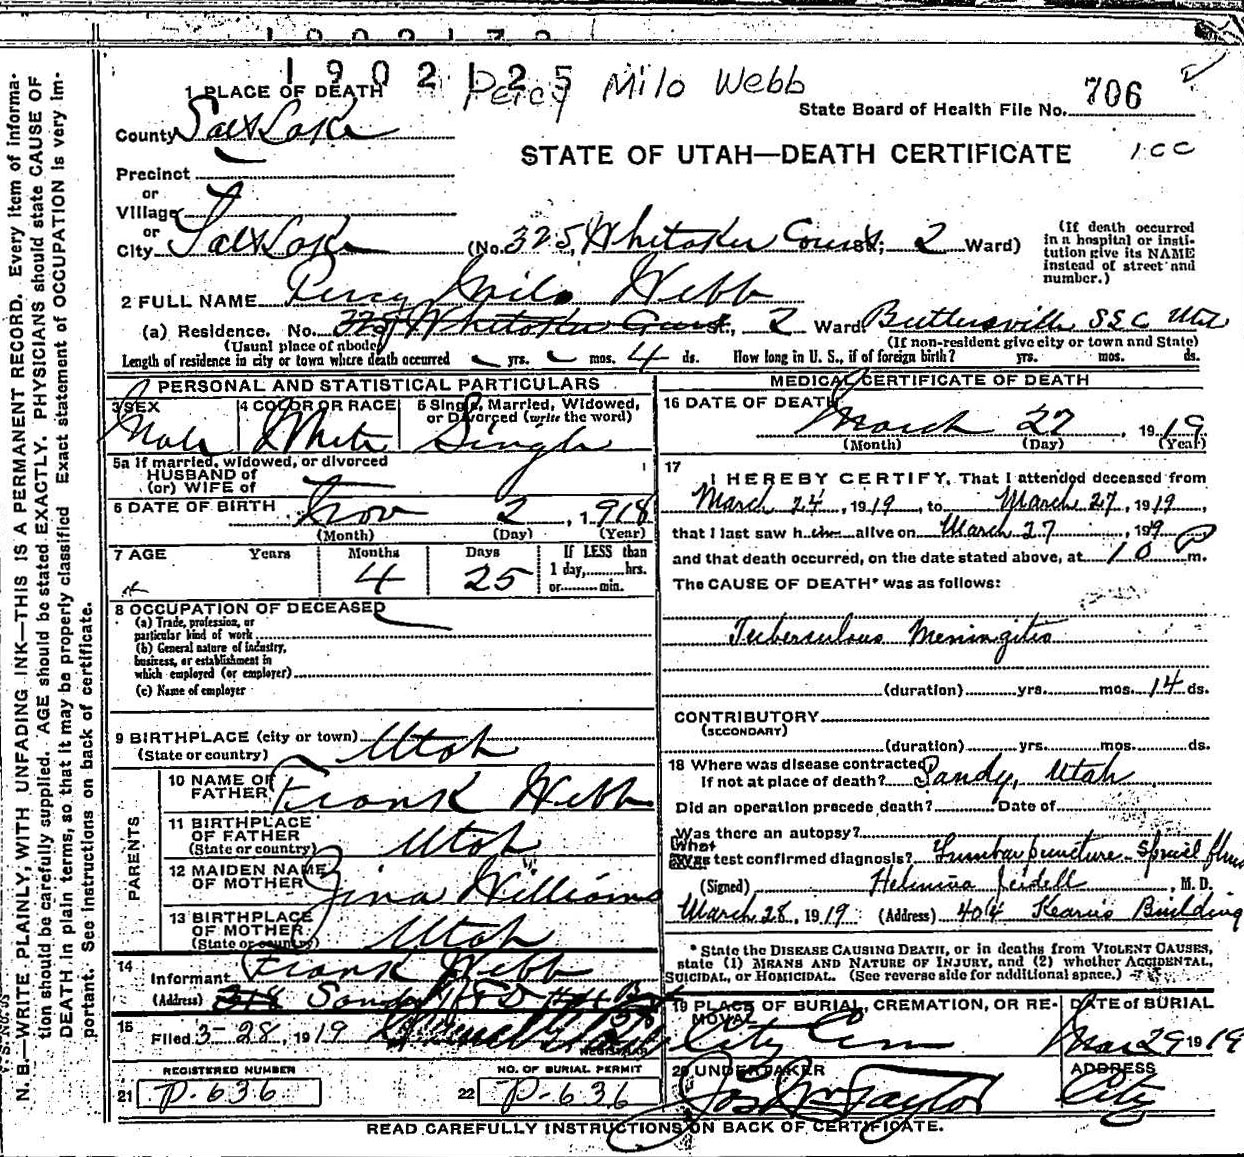 1902125
Percy Milo Webb
1 PLACE OF DEATH
State Board of Health File No. 706
County Salt Lake
STATE OF UTAH—DEATH CERTIFICATE
1 C C
Precinct
or
Village
or
City Salt Lake (No. 325, Whitaker Court St; 2 Ward)
(If death occurred in a hospital or institution give its NAME instead of street and number.)
2 FULL NAME Percy Milo Webb
(a) Residence. No. 325 Whitaker Court St., 2 Ward. Buttersville SLC Utd
(Usual place of abode) (If non-resident give city or town and State)
Length of residence in city or town where death occurred yrs. mos. 4 ds. How long in U. S., if of foreign birth? yrs. mos. ds.
PERSONAL AND STATISTICAL PARTICULARS
3 SEX Male
4 COLOR OR RACE White
5 Single, Married, Widowed, or Divorced (write the word) Single
5a If married, widowed, or divorced
HUSBAND of
(or) WIFE of
6 DATE OF BIRTH Nov 2, 1918
(Month) (Day) (Year)
7 AGE Years Months 4 Days 25
If LESS than 1 day, hrs. or min.
8 OCCUPATION OF DECEASED
(a) Trade, profession, or particular kind of work
(b) General nature of industry, business, or establishment in which employed (or employer)
(c) Name of employer
9 BIRTHPLACE (city or town) Utah
(State or country)
PARENTS
10 NAME OF FATHER Frank Webb
11 BIRTHPLACE OF FATHER (State or country) Utah
12 MAIDEN NAME OF MOTHER Zina Williams
13 BIRTHPLACE OF MOTHER (State or country) Utah
14 Informant Frank Webb
(Address) Sandy
15 Filed 3-28, 1919
REGISTRAR
REGISTERED NUMBER
21 P-636
NO. OF BURIAL PERMIT
22 P-636
MEDICAL CERTIFICATE OF DEATH
16 DATE OF DEATH March 27, 1919
(Month) (Day) (Year)
17 I HEREBY CERTIFY, That I attended deceased from
March 24, 1919, to March 27, 1919,
that I last saw h im alive on March 27, 1919
and that death occurred, on the date stated above, at 10 P m.
The CAUSE OF DEATH* was as follows:
Tuberculous Meningitis
(duration) yrs. mos. 14 ds.
CONTRIBUTORY
(SECONDARY)
(duration) yrs. mos. ds.
18 Where was disease contracted
If not at place of death? Sandy, Utah
Did an operation precede death? Date of
Was there an autopsy?
What test confirmed diagnosis? Lumbar puncture - Spinal fluid
(Signed) , M. D.
March 28, 1919 (Address) 404 Kearns Building
* State the DISEASE CAUSING DEATH, or in deaths from VIOLENT CAUSES,
state (1) MEANS AND NATURE OF INJURY, and (2) whether ACCIDENTAL,
SUICIDAL, or HOMICIDAL. (See reverse side for additional space.)
19 PLACE OF BURIAL, CREMATION, OR REMOVAL City Cem
DATE of BURIAL Mar 29 1919
20 UNDERTAKER Jos Wm Taylor
ADDRESS City
READ CAREFULLY INSTRUCTIONS ON BACK OF CERTIFICATE.
N. B.—WRITE PLAINLY, WITH UNFADING INK—THIS IS A PERMANENT RECORD. Every item of informa-
tion should be carefully supplied. AGE should be stated EXACTLY. PHYSICIANS should state CAUSE OF
DEATH in plain terms, so that it may be properly classified. Exact statement of OCCUPATION is very im-
portant. See instructions on back of certificate.